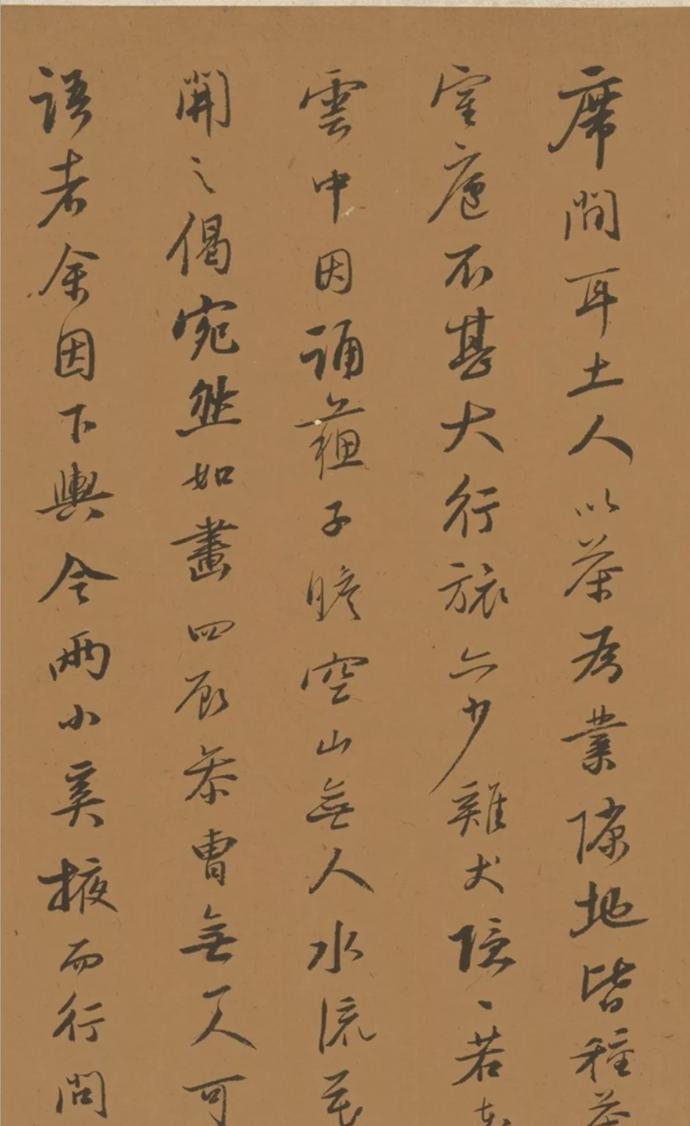 席間耳土人以茶為業隙地皆種茶
室廬不甚大行旅亦少雞犬隱隱若在
雲中因誦蘇子瞻空山無人水流花
開之偈宛然如畫四顧茶曹無一人可
語者余因下輿令兩小奚掖而行問